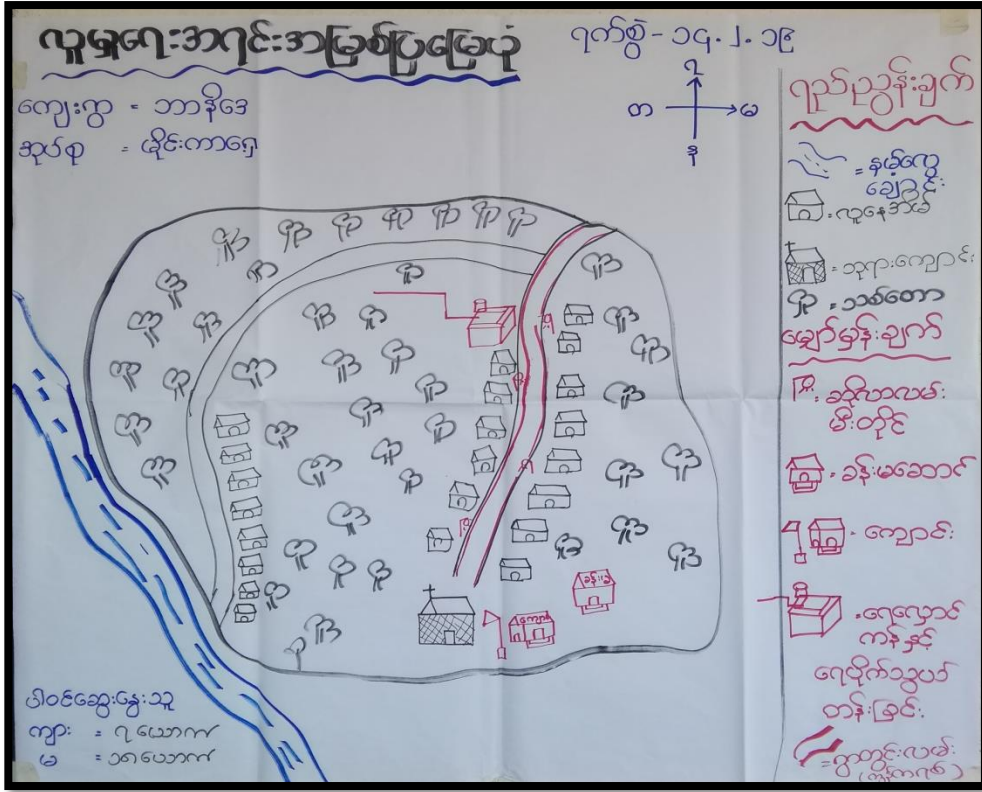 လူမှုရေးအရင်းအမြစ်ပြမြေပုံ
ရက်စွဲ - ၁၄.၂.၁၉
ကျေးရွာ = ဘာနီဒေ
အုပ်စု = ဖိုင်းကာရှေ
တ
မ
ရည်ညွှန်းချက်
ချောင်း
= လူနေအိမ်
= ဘုရားကျောင်း
= သစ်တော
မျှော်မှန်းချက်
= ဆိုလာလမ်း
မီးတိုင်
= ခန်းမဆောင်
= ကျောင်း
= ရေလှောင်
ကန်နှင့်
ရေပိုက်သွယ်
တန်းခြင်း
= ရွာတွင်းလမ်း
ခန်းမ
ကျောင်း
ပါဝင်ဆွေးနွေးသူ
ကျား = ၇ယောက်
မ = ၁၈ယောက်